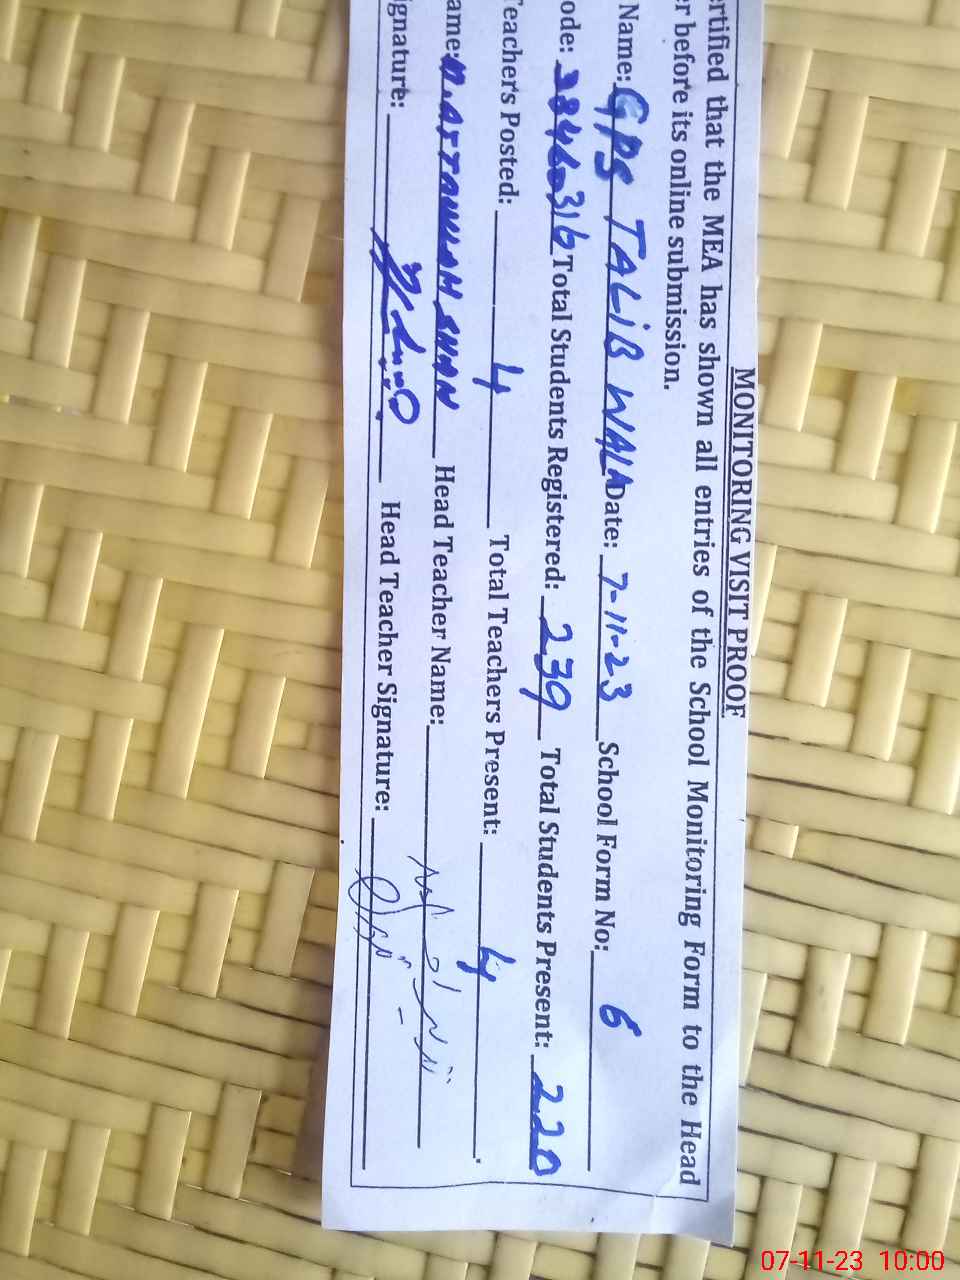 MONITORING VISIT PROOF
ertified that the MEA has shown all entries of the School Monitoring Form to the Head
er before its online submission.
Name: GPS TALIB WALA Date: 7-11-23 School Form No: 6
ode: 38460316 Total Students Registered: 239 Total Students Present: 220
Teachers Posted: 4 Total Teachers Present: 4
ame: SHAH Head Teacher Name:
ignature: Head Teacher Signature:
07-11-23 10:00